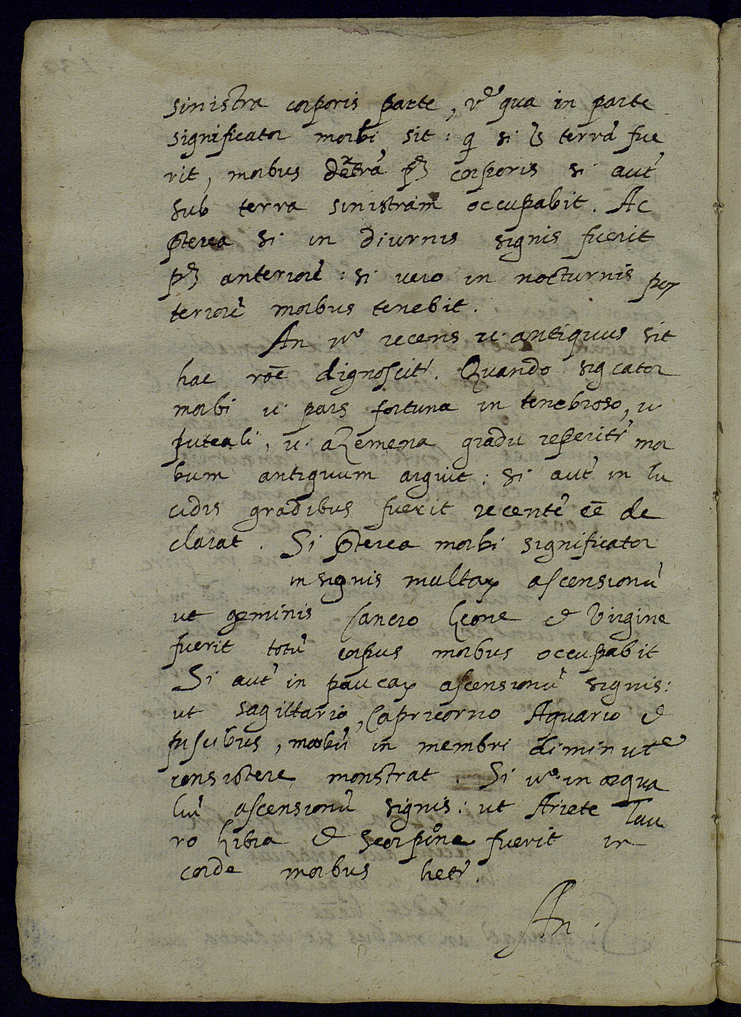 sinistra corporis parte, vº qua in parte
significator morbi sit: si terrã fue
rit, morbus dextrã corporis si aut̃
sub terra sinistram occupabit. Ac
p̃terea si in diurnis signis fuerit
anteriorẽ: si vero in nocturnis pos
teriorẽ morbus tenebit.
An vº recens ut antiquus sit
hac rõe dignoscit̃. Quando sigcator
morbi ut pars fortunæ in tenebroso, ut
puteali, ut azemena gradu reperit̃ mor
bum antiquum arguit: si aut̃ in lu
cidis gradibus fuerit recentẽ eẽ de
clarat. Si p̃terea morbi significator
in signis multaꝝ ascensionũ
ut geminis Cancro Leone et Virgine
fuerit totũ corpus morbus occupabit
Si aut̃ in paucaꝝ ascensionũ signis:
ut sagittario, Capricorno Aquario et
piscibus, morbũ in membri diminute
consistere monstrat. Si vº in æqua
liũ ascensionũ signis: ut Ariete Tau
ro Libra et Scorpione fuerit in
corde morbus het̃.
An.